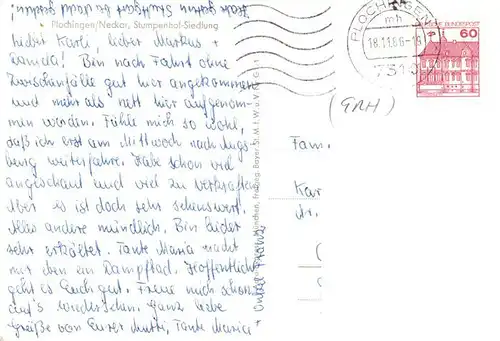 Plochingen/Neckar, Stumpenhof-Siedlung
Lieber Karli, lieber Markus +
! Bin nach Fahrt ohne
Zwischenfälle gut hier angekommen
und mehr als nett hier aufgenom-
men worden. Fühle mich so wohl,
daß ich erst am Mittwoch nach Augs-
burg weiterfahre. Habe schon viel
angeschaut und viel zu verkraften
Aber es ist doch sehr sehenswert.
Alles andere mündlich. Bin leider
sehr erkältet. Tante Maria macht
mir eben ein Dampfbad. Hoffentlich
geht es Euch gut. Freue mich schon
auf's Wiedersehen. Ganz liebe
Grüße von Eurer Mutti, Tante Maria
+ Onkel Franz
PLOCHINGEN
mh
18.11.86-15
7310
DEUTSCHE BUNDESPOST
60
(GRH)
Fam.
Kar